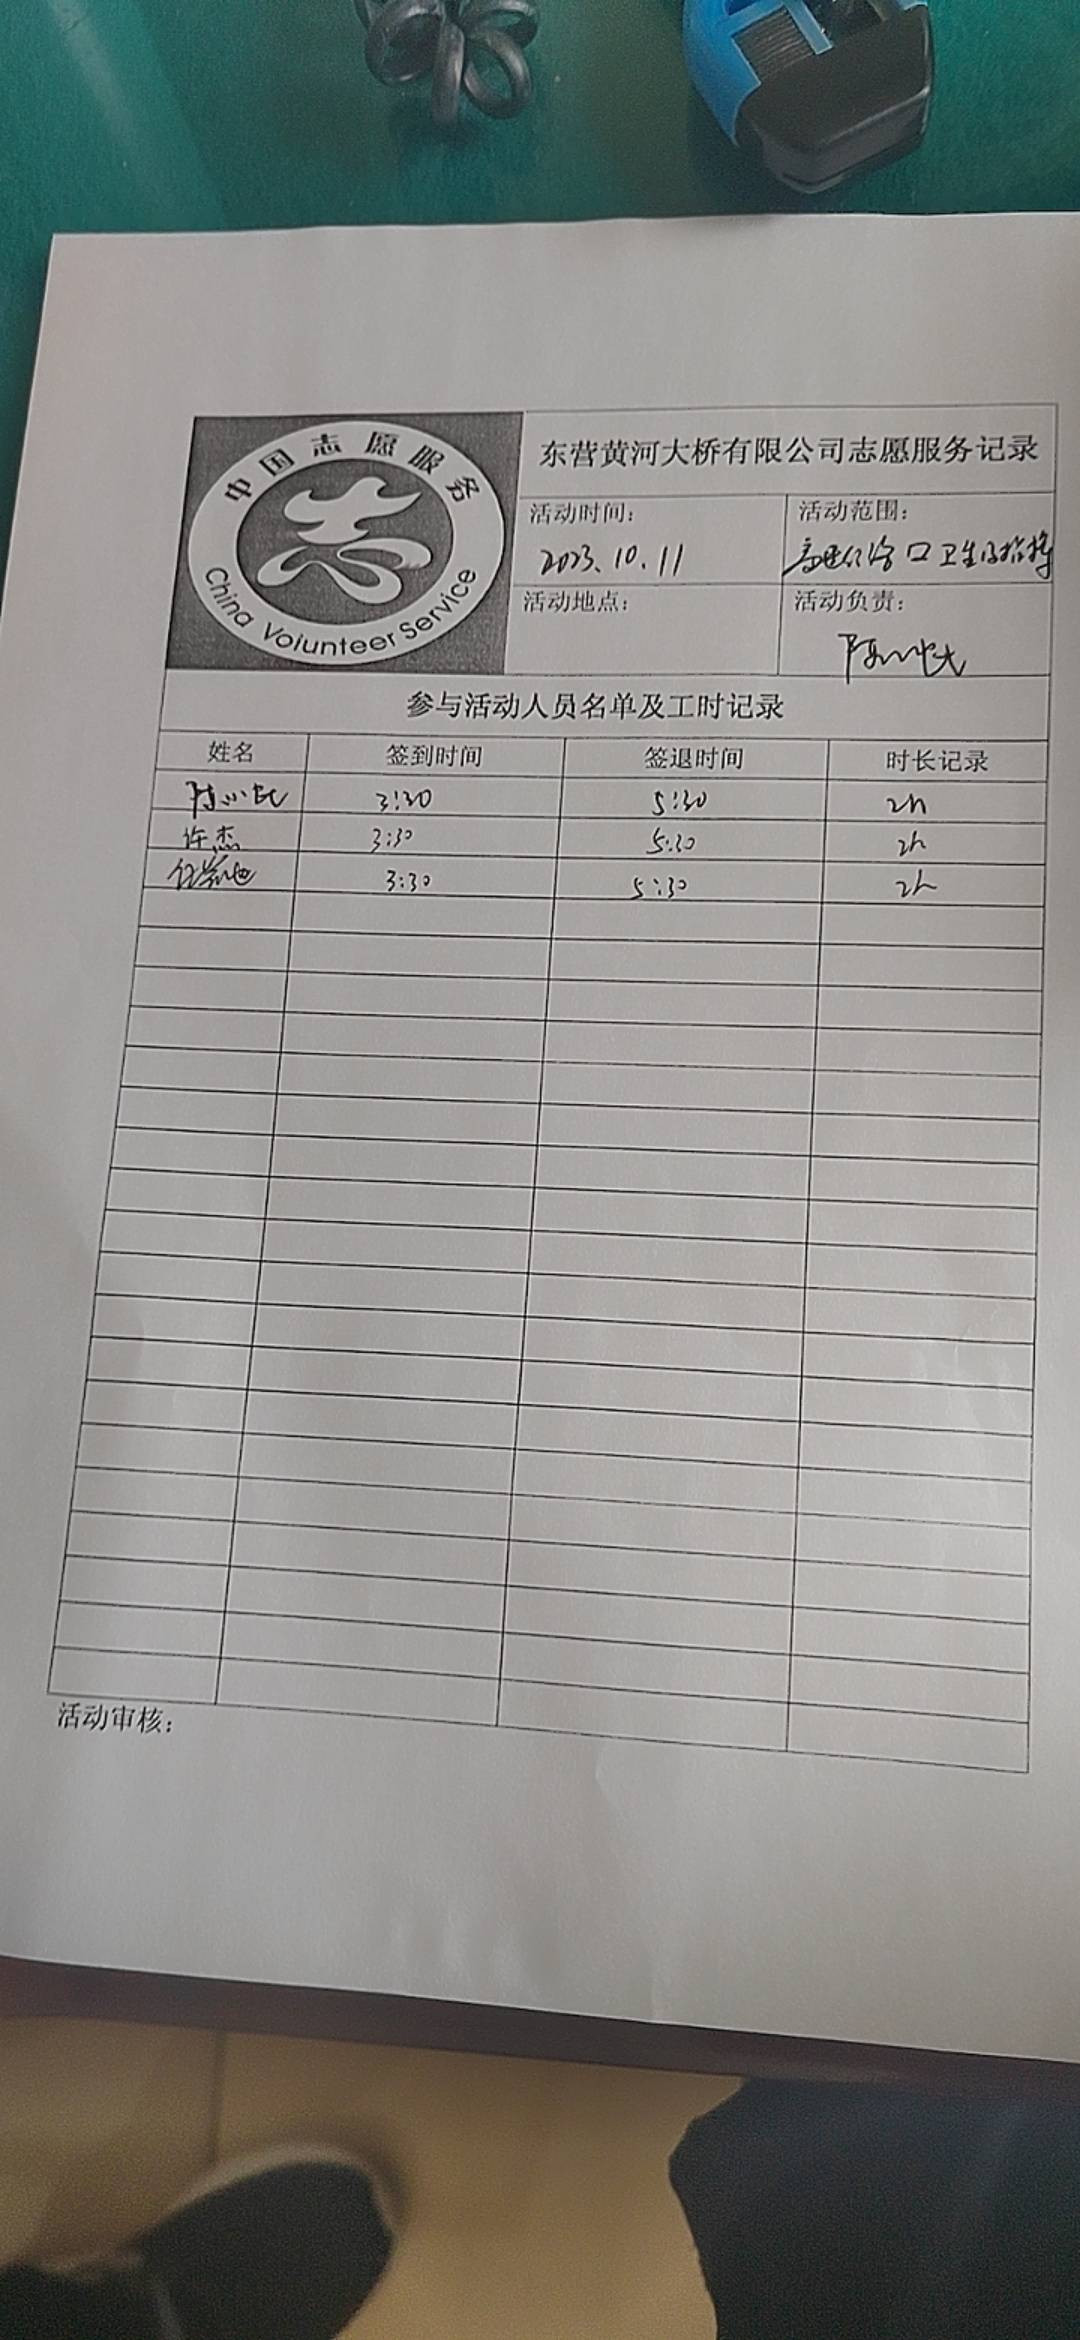 中国志愿服务
China Volunteer Service
东营黄河大桥有限公司志愿服务记录
活动时间：
2023.10.11
活动范围：
口卫生及指挥
活动地点：
活动负责：
参与活动人员名单及工时记录
姓名 签到时间 签退时间 时长记录
3:30 5:30 2h
许杰 3:30 5:30 2h
3:30 5:30 2h
活动审核：